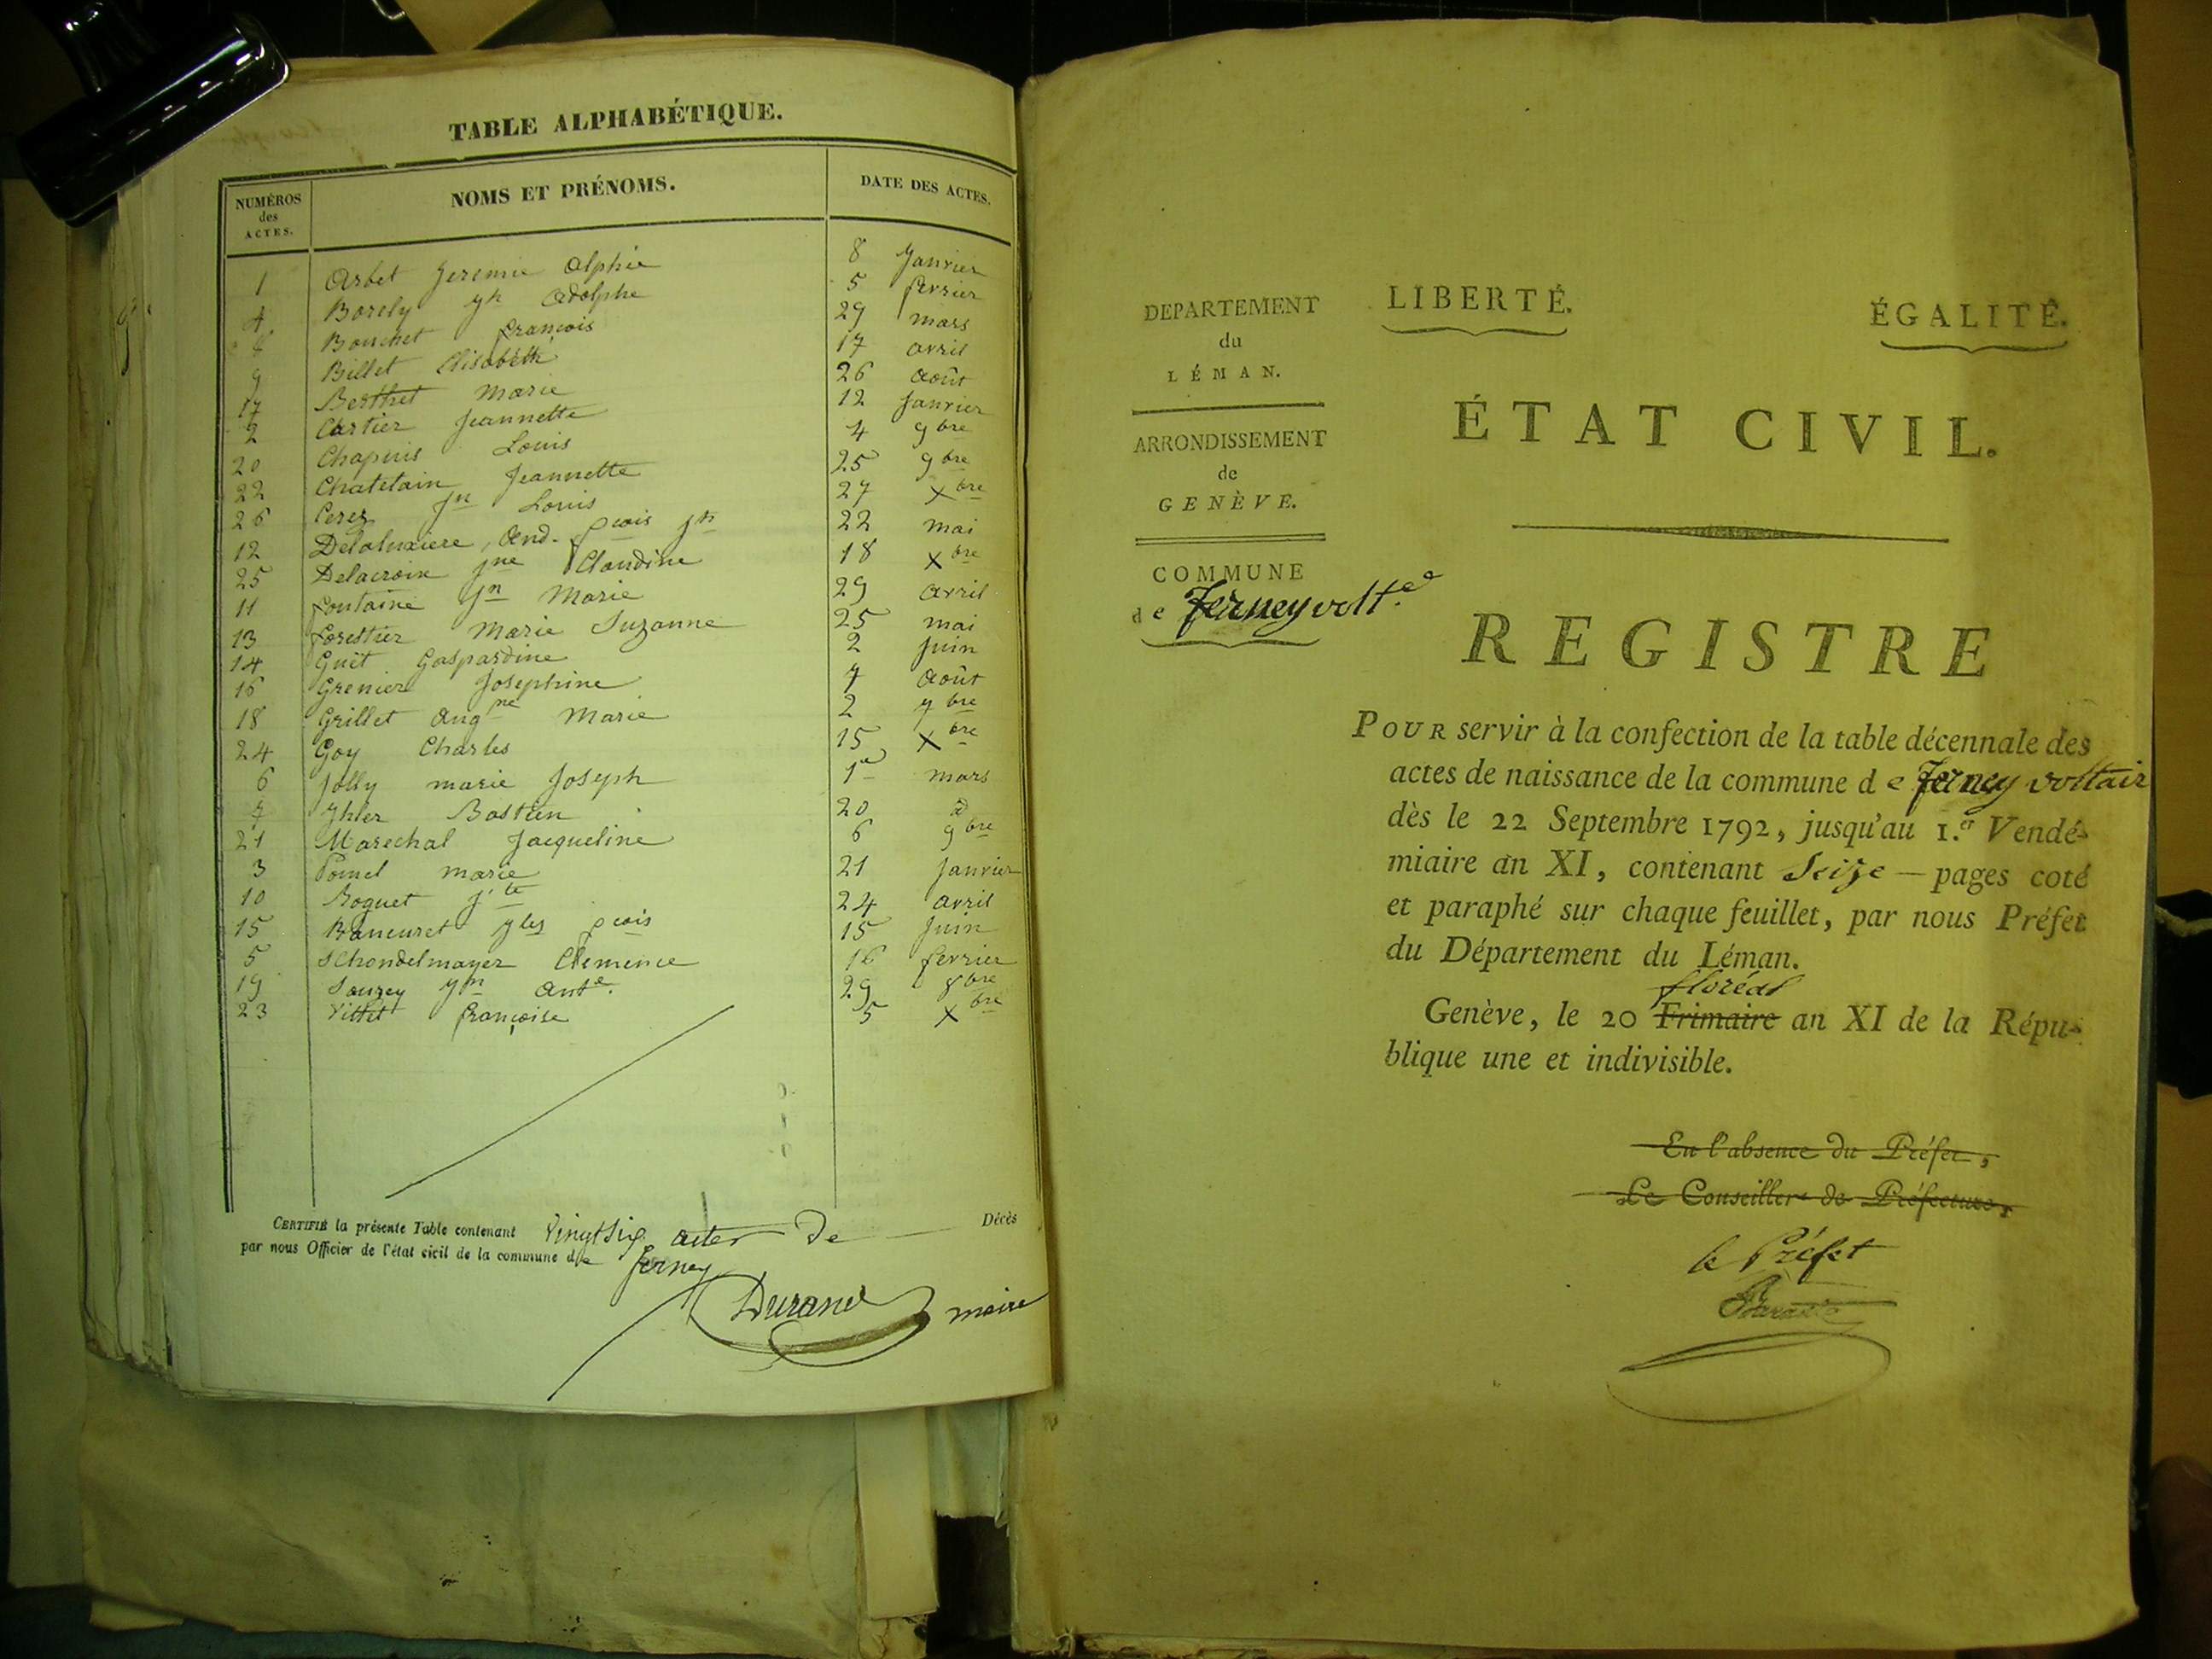 TABLE ALPHABÉTIQUE.
NUMÉROS
des
ACTES.
NOMS ET PRÉNOMS.
DATE DES ACTES.
1 Arbet Jeremie Alphie 8 Janvier
4 Borely Jh Adolphe 5 fevrier
Bouchet François 29 mars
9 Billet Elisabeth 17 avril
17 Berthet Marie 26 Août
2 Cartier Jeannette 12 Janvier
20 Chapuis Louis 4 9bre
22 Chatelain Jeannette 25 9bre
26 Cerez Jn Louis 27 Xbre
12 And. fcois Jh 22 mai
25 Delacroix Jne Claudine 18 Xbre
11 fontaine Jn Marie 29 avril
13 forestier Marie Suzanne 25 mai
14 Guet Gaspardine 2 Juin
16 Grenier Josephine 7 Août
18 Grillet Augne Marie 2 7bre
24 Goy Charles 15 Xbre
6 Jolly marie Joseph 1er mars
7 Yhler Bastien 20 d
21 Marechal Jacqueline 6 9bre
3 marie 21 Janvier
10 Roguet Jte 24 avril
15 fcois 15 Juin
5 Schondelmayer Clemence 16 fevrier
19 Jn Ante. 29 8bre
23 françoise 5 Xbre
CERTIFIÉ la présente Table contenant Vingt Six actes de — Décès
par nous Officier de l'état civil de la commune de ferney
Durand maire
DEPARTEMENT
du
LÉMAN.
ARRONDISSEMENT
de
GENÈVE.
COMMUNE
de ferney volt.e
LIBERTÉ. ÉGALITÉ.
ÉTAT CIVIL.
REGISTRE
POUR servir à la confection de la table décennale des
actes de naissance de la commune de ferney voltair
dès le 22 Septembre 1792, jusqu'au 1.er Vendé-
miaire an XI, contenant Seize — pages coté
et paraphé sur chaque feuillet, par nous Préfet
du Département du Léman.
floréal
Genève, le 20 Frimaire an XI de la Répu-
blique une et indivisible.
En l'absence du Préfet,
Le Conseiller de Préfecture,
le Préfet
Barante